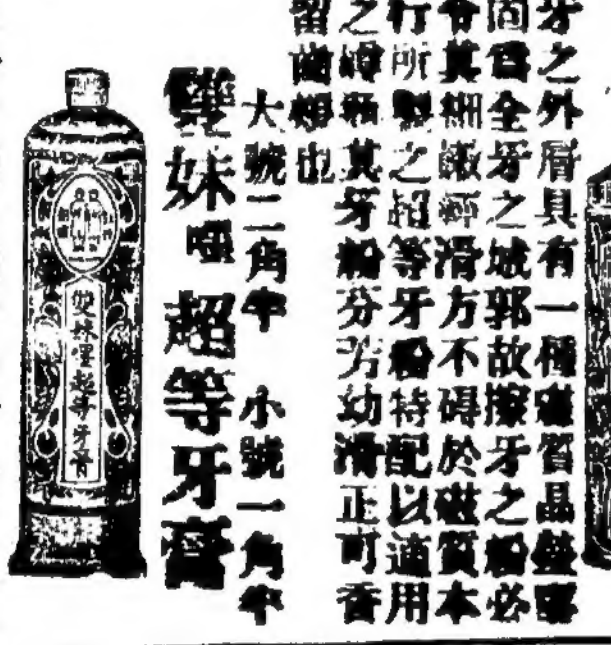 牙之外層具有一種磁質晶瑩堅
固爲全牙之城郭故擦牙之粉必
令其細緻輕滑方不碍於磁質本
行所製之超等牙粉特配以適用
之樽瓶其牙粉芬芳幼滑正可香
留齒頰也
大號二角半 小號一角半
雙妹嚜超等牙膏
雙妹嚜超等牙膏